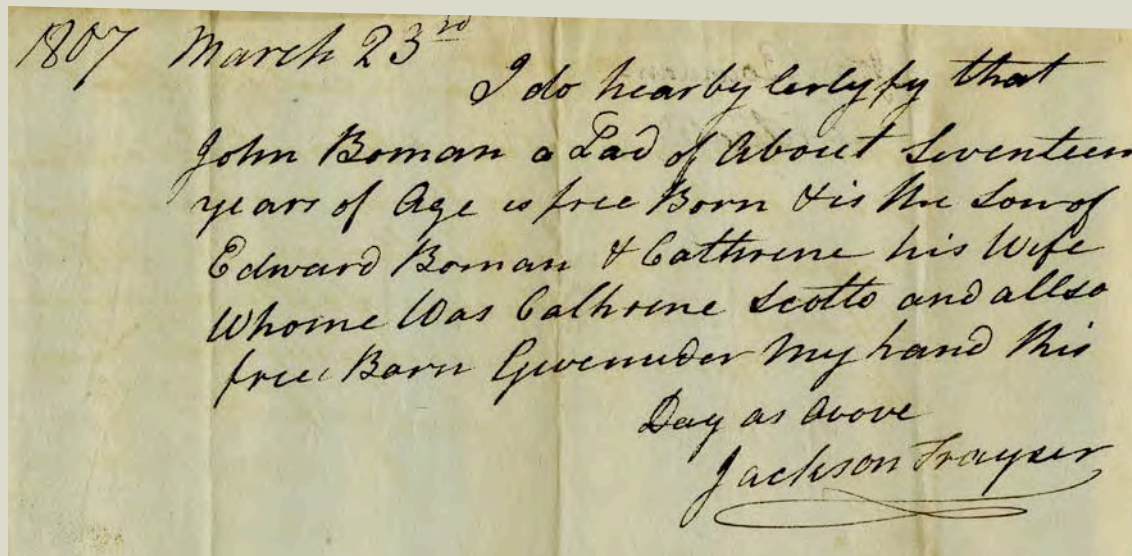 1807 March 23rd
I do hearby certyfy that
John Boman a Lad of About Seventeen
years of Age is free Born & is the Son of
Edward Boman & Cathrene his Wife
Whome Was Cathrene Scotto and allso
free Born Given under My hand this
Day as above
Jackson Frayser